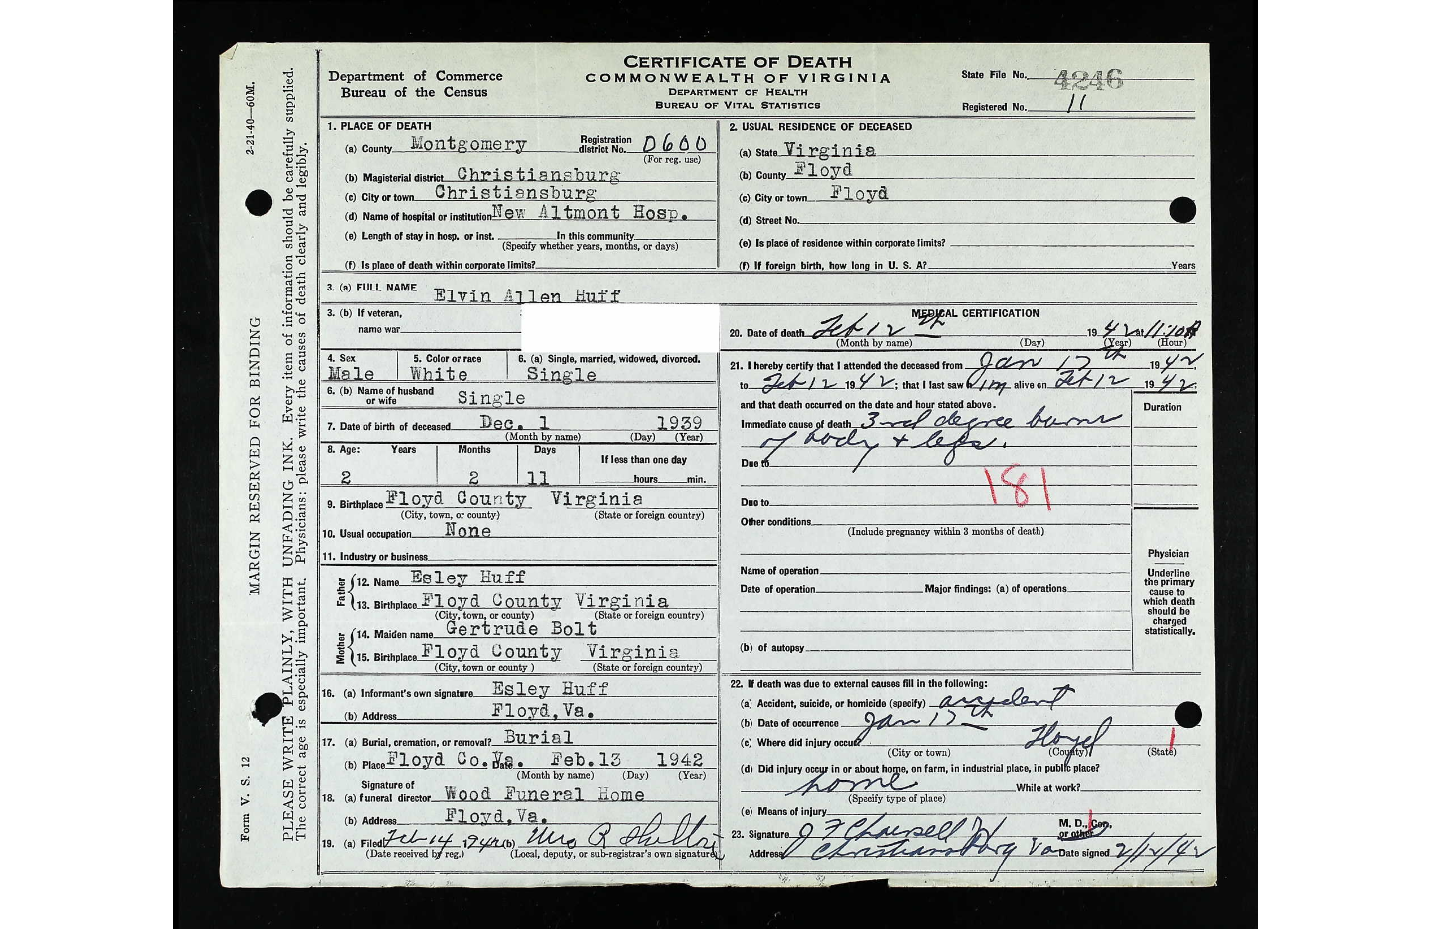 CERTIFICATE OF DEATH
COMMONWEALTH OF VIRGINIA
DEPARTMENT OF HEALTH
BUREAU OF VITAL STATISTICS
Department of Commerce
Bureau of the Census
State File No. 4246
Registered No. 11
2-21-40—60M.
MARGIN RESERVED FOR BINDING
Form V. S. 12
PLEASE WRITE PLAINLY, WITH UNFADING INK. Every item of information should be carefully supplied.
The correct age is especially important. Physicians: please write the causes of death clearly and legibly.
1. PLACE OF DEATH
(a) County Montgomery Registration district No. D600
(For reg. use)
(b) Magisterial district Christiansburg
(c) City or town Christiansburg
(d) Name of hospital or institution New Altmont Hosp.
(e) Length of stay in hosp. or inst. In this community
(Specify whether years, months, or days)
(f) Is place of death within corporate limits?
2. USUAL RESIDENCE OF DECEASED
(a) State Virginia
(b) County Floyd
(c) City or town Floyd
(d) Street No.
(e) Is place of residence within corporate limits?
(f) If foreign birth, how long in U. S. A? Years
3. (a) FULL NAME Elvin Allen Huff
3. (b) If veteran,
name war
4. Sex 5. Color or race 6. (a) Single, married, widowed, divorced.
Male White Single
6. (b) Name of husband or wife Single
7. Date of birth of deceased Dec. 1 1939
(Month by name) (Day) (Year)
8. Age: Years Months Days If less than one day
2 2 11 hours min.
9. Birthplace Floyd County Virginia
(City, town, or county) (State or foreign country)
10. Usual occupation None
11. Industry or business
Father
12. Name Esley Huff
13. Birthplace Floyd County Virginia
(City, town, or county) (State or foreign country)
Mother
14. Maiden name Gertrude Bolt
15. Birthplace Floyd County Virginia
(City, town or county ) (State or foreign country)
16. (a) Informant's own signature Esley Huff
(b) Address Floyd, Va.
17. (a) Burial, cremation, or removal? Burial
(b) Place Floyd Co. Va. Date Feb. 13 1942
(Month by name) (Day) (Year)
Signature of
18. (a) funeral director Wood Funeral Home
(b) Address Floyd, Va.
19. (a) Filed Feb 14 1942 (b) Mrs R
(Date received by reg.) (Local, deputy, or sub-registrar's own signature)
MEDICAL CERTIFICATION
20. Date of death Feb 12th 1942 at 11:10 A
(Month by name) (Day) (Year) (Hour)
21. I hereby certify that I attended the deceased from Jan 17th 1942,
to Feb 12 1942; that I last saw him alive on Feb 12 1942.
and that death occurred on the date and hour stated above.
Immediate cause of death 3rd degree burns
of body + legs.
Due to
181
Due to
Other conditions
(Include pregnancy within 3 months of death)
Name of operation
Date of operation Major findings: (a) of operations
(b) of autopsy
Duration
Physician
Underline
the primary
cause to
which death
should be
charged
statistically.
22. If death was due to external causes fill in the following:
(a) Accident, suicide, or homicide (specify) accident
(b) Date of occurrence Jan 17th
(c) Where did injury occur Floyd
(City or town) (County) (State)
(d) Did injury occur in or about home, on farm, in industrial place, in public place?
home While at work?
(Specify type of place)
(e) Means of injury
23. Signature M. D., Cor. or other
Address Christiansburg Va Date signed 2/12/42